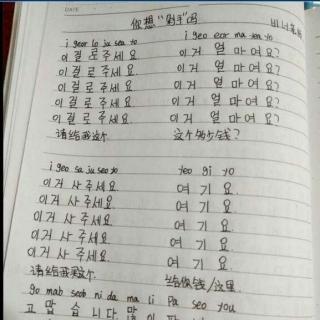 DATE
你想"剁手"吗
i geor lo ju sea yo i geo eor ma yeo yo
이걸로주세요 이거 얼마여요?
이걸로주세요 이거 얼마여요?
이걸로주세요 이거 얼마여요?
이걸로주세요 이거 얼마여요?
이걸로주세요 이거 얼마여요?
请给我这个 这个多少钱?
i geo sa ju seo yo yeo gi yo
이거 사 주세요 여기요
이거 사 주세요 여기요
이거 사 주세요 여기요
이거 사 주세요 여기요.
이거 사 주세요 여기요.
请给我买这个. 给你钱/这里.
go mab seob ni da ma li pa seo you
고맙습니다